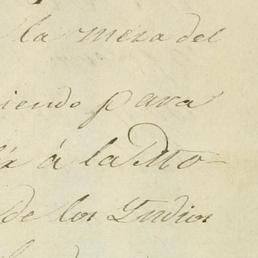 la mesa del
iendo para
á la Mo
de los Indios